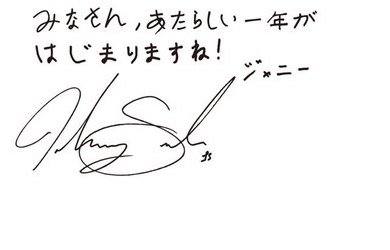 みなさん，あたらしい一年が
はじまりますね！
ジャニー